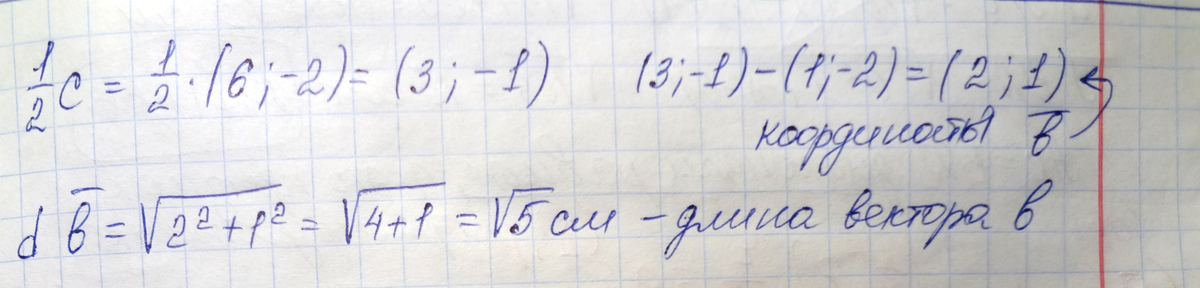 1/2 c = 1/2 · (6; -2) = (3; -1) (3; -1) - (1; -2) = (2; 1)
координаты b̅
d b̅ = √(2² + 1²) = √(4+1) = √5 см - длина вектора b